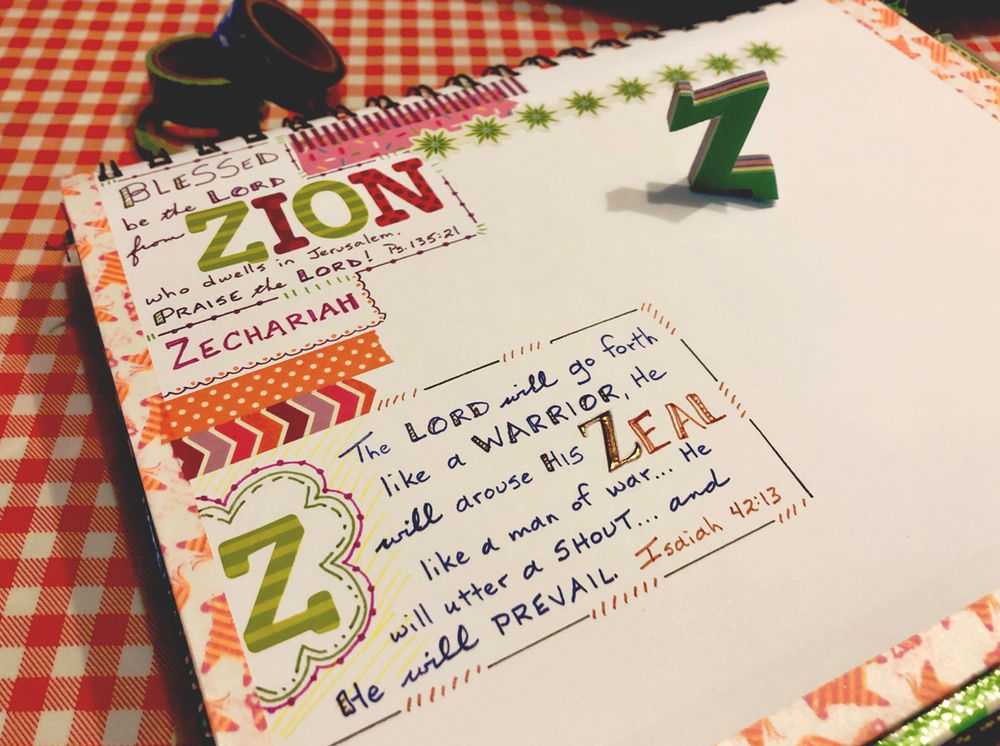 BLESSED
be the LORD
from ZION
who dwells in Jerusalem.
PRAISE the LORD! Ps. 135:21
ZECHARIAH
Z
The LORD will go forth
like a WARRIOR, He
will arouse His ZEAL
like a man of war... He
will utter a SHOUT... and
He will PREVAIL. Isaiah 42:13
Z